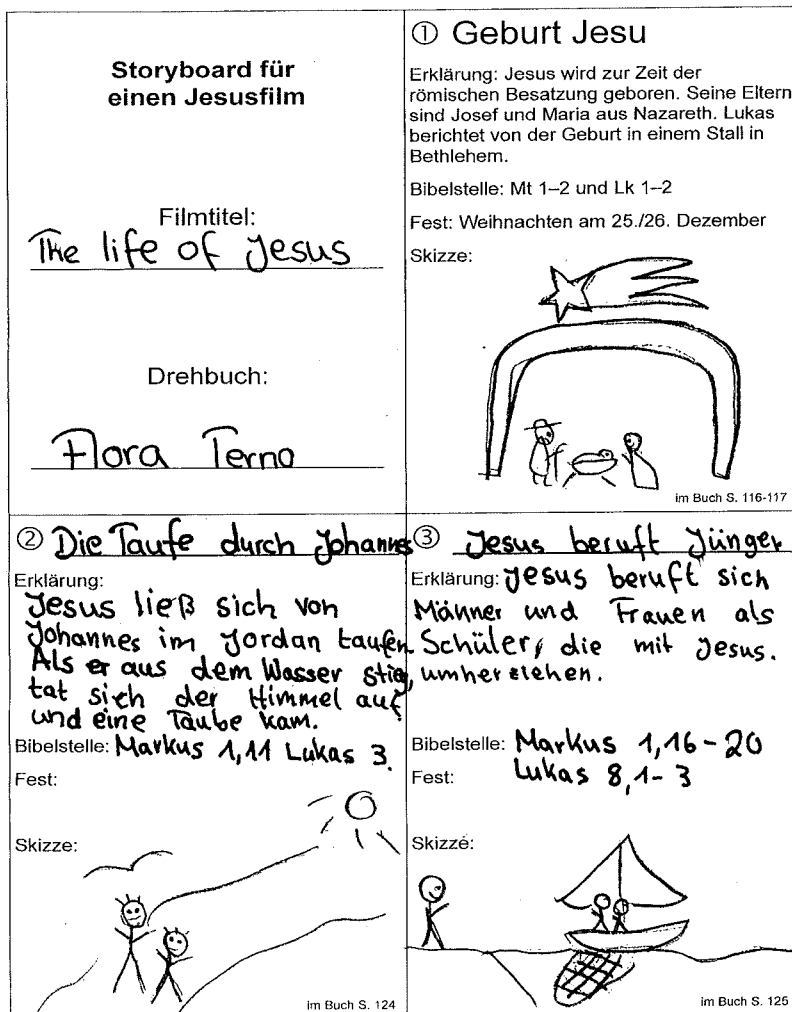 Storyboard für
einen Jesusfilm
Filmtitel:
The life of Jesus
Drehbuch:
Flora Terno
① Geburt Jesu
Erklärung: Jesus wird zur Zeit der
römischen Besatzung geboren. Seine Eltern
sind Josef und Maria aus Nazareth. Lukas
berichtet von der Geburt in einem Stall in
Bethlehem.
Bibelstelle: Mt 1–2 und Lk 1–2
Fest: Weihnachten am 25./26. Dezember
Skizze:
im Buch S. 116-117
② Die Taufe durch Johannes
Erklärung:
Jesus ließ sich von
Johannes im Jordan taufen.
Als er aus dem Wasser stieg,
tat sich der Himmel auf
und eine Taube kam.
Bibelstelle: Markus 1,11 Lukas 3
Fest:
Skizze:
im Buch S. 124
③ Jesus beruft Jünger
Erklärung: Jesus beruft sich
Männer und Frauen als
Schüler, die mit Jesus.
umherziehen.
Bibelstelle: Markus 1,16-20
Fest: Lukas 8,1-3
Skizze:
im Buch S. 125